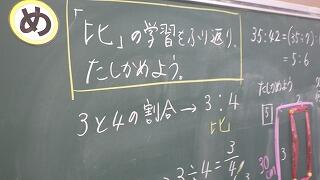 め
「比」の学習をふり返り、
たしかめよう。
3と4の割合→3:4
比
3÷4=3/4
35:42=(35÷7)
=5:6
たしかめよう
5
3